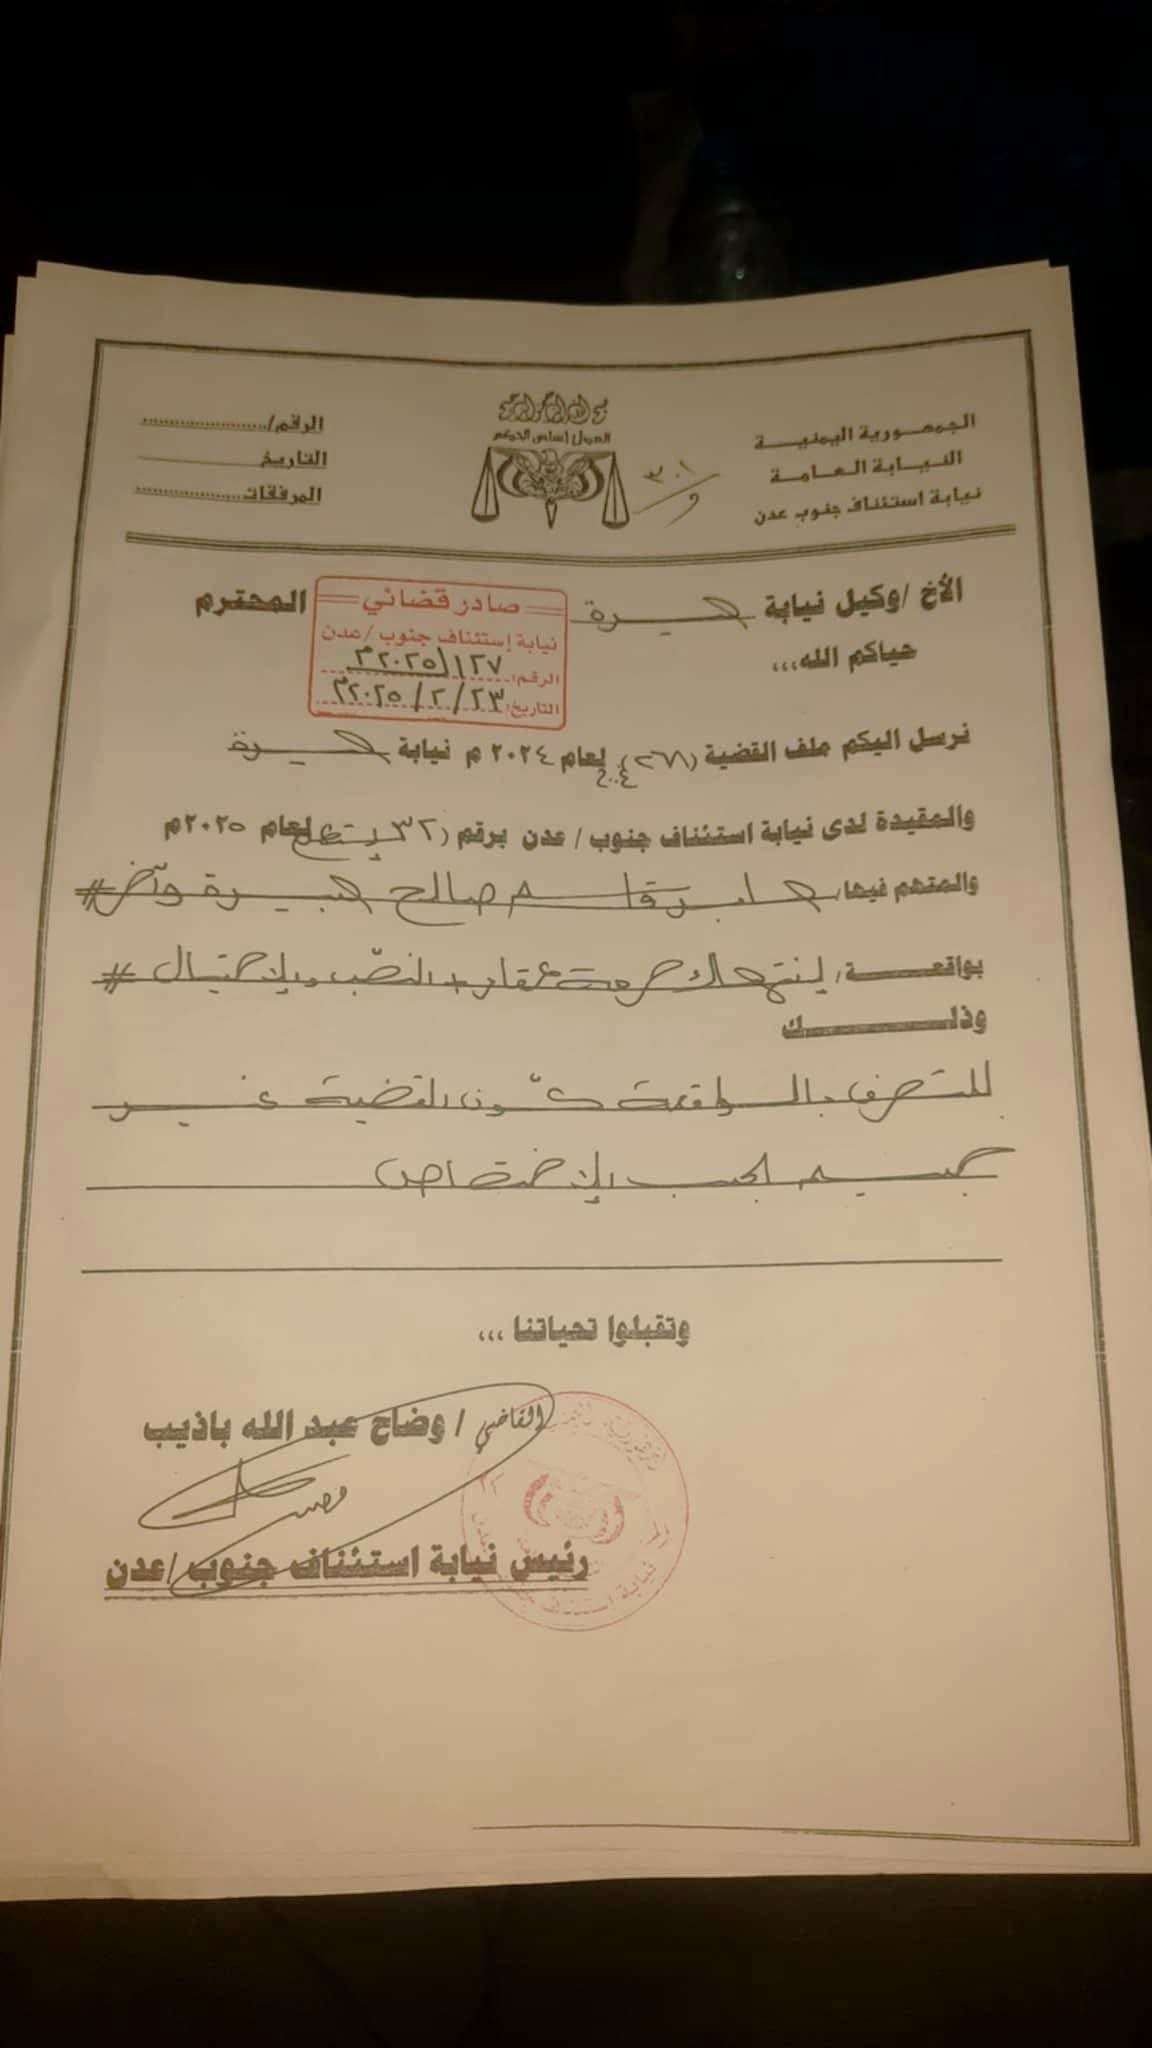 الجمهورية اليمنية
النيابة العامة
نيابة استئناف جنوب عدن
العدل أساس الحكم
٣٠١
الرقم/
التاريخ
المرفقات
الأخ /وكيل نيابة صيرة المحترم
صادر قضائي
نيابة إستئناف جنوب /عدن
الرقم: ١٢٧/٢٠٢٥م
التاريخ: ٢٣/٢/٢٠٢٥م
حياكم الله،،،
نرسل اليكم ملف القضية (٢٦٨) لعام ٢٠٢٤ م نيابة صيرة
والمقيدة لدى نيابة استئناف جنوب / عدن برقم (٣٢) لعام ٢٠٢٥م
والمتهم فيها/ قاسم صالح وآخر #
بواقعة/ إنتهاك حرمة عقار + النصب والاحتيال #
وذلك
للتصرف بالواقعة كون القضية غير
جسيم بحسب الاختصاص
وتقبلوا تحياتنا ،،،
القاضي / وضاح عبد الله باذيب
رئيس نيابة استئناف جنوب /عدن